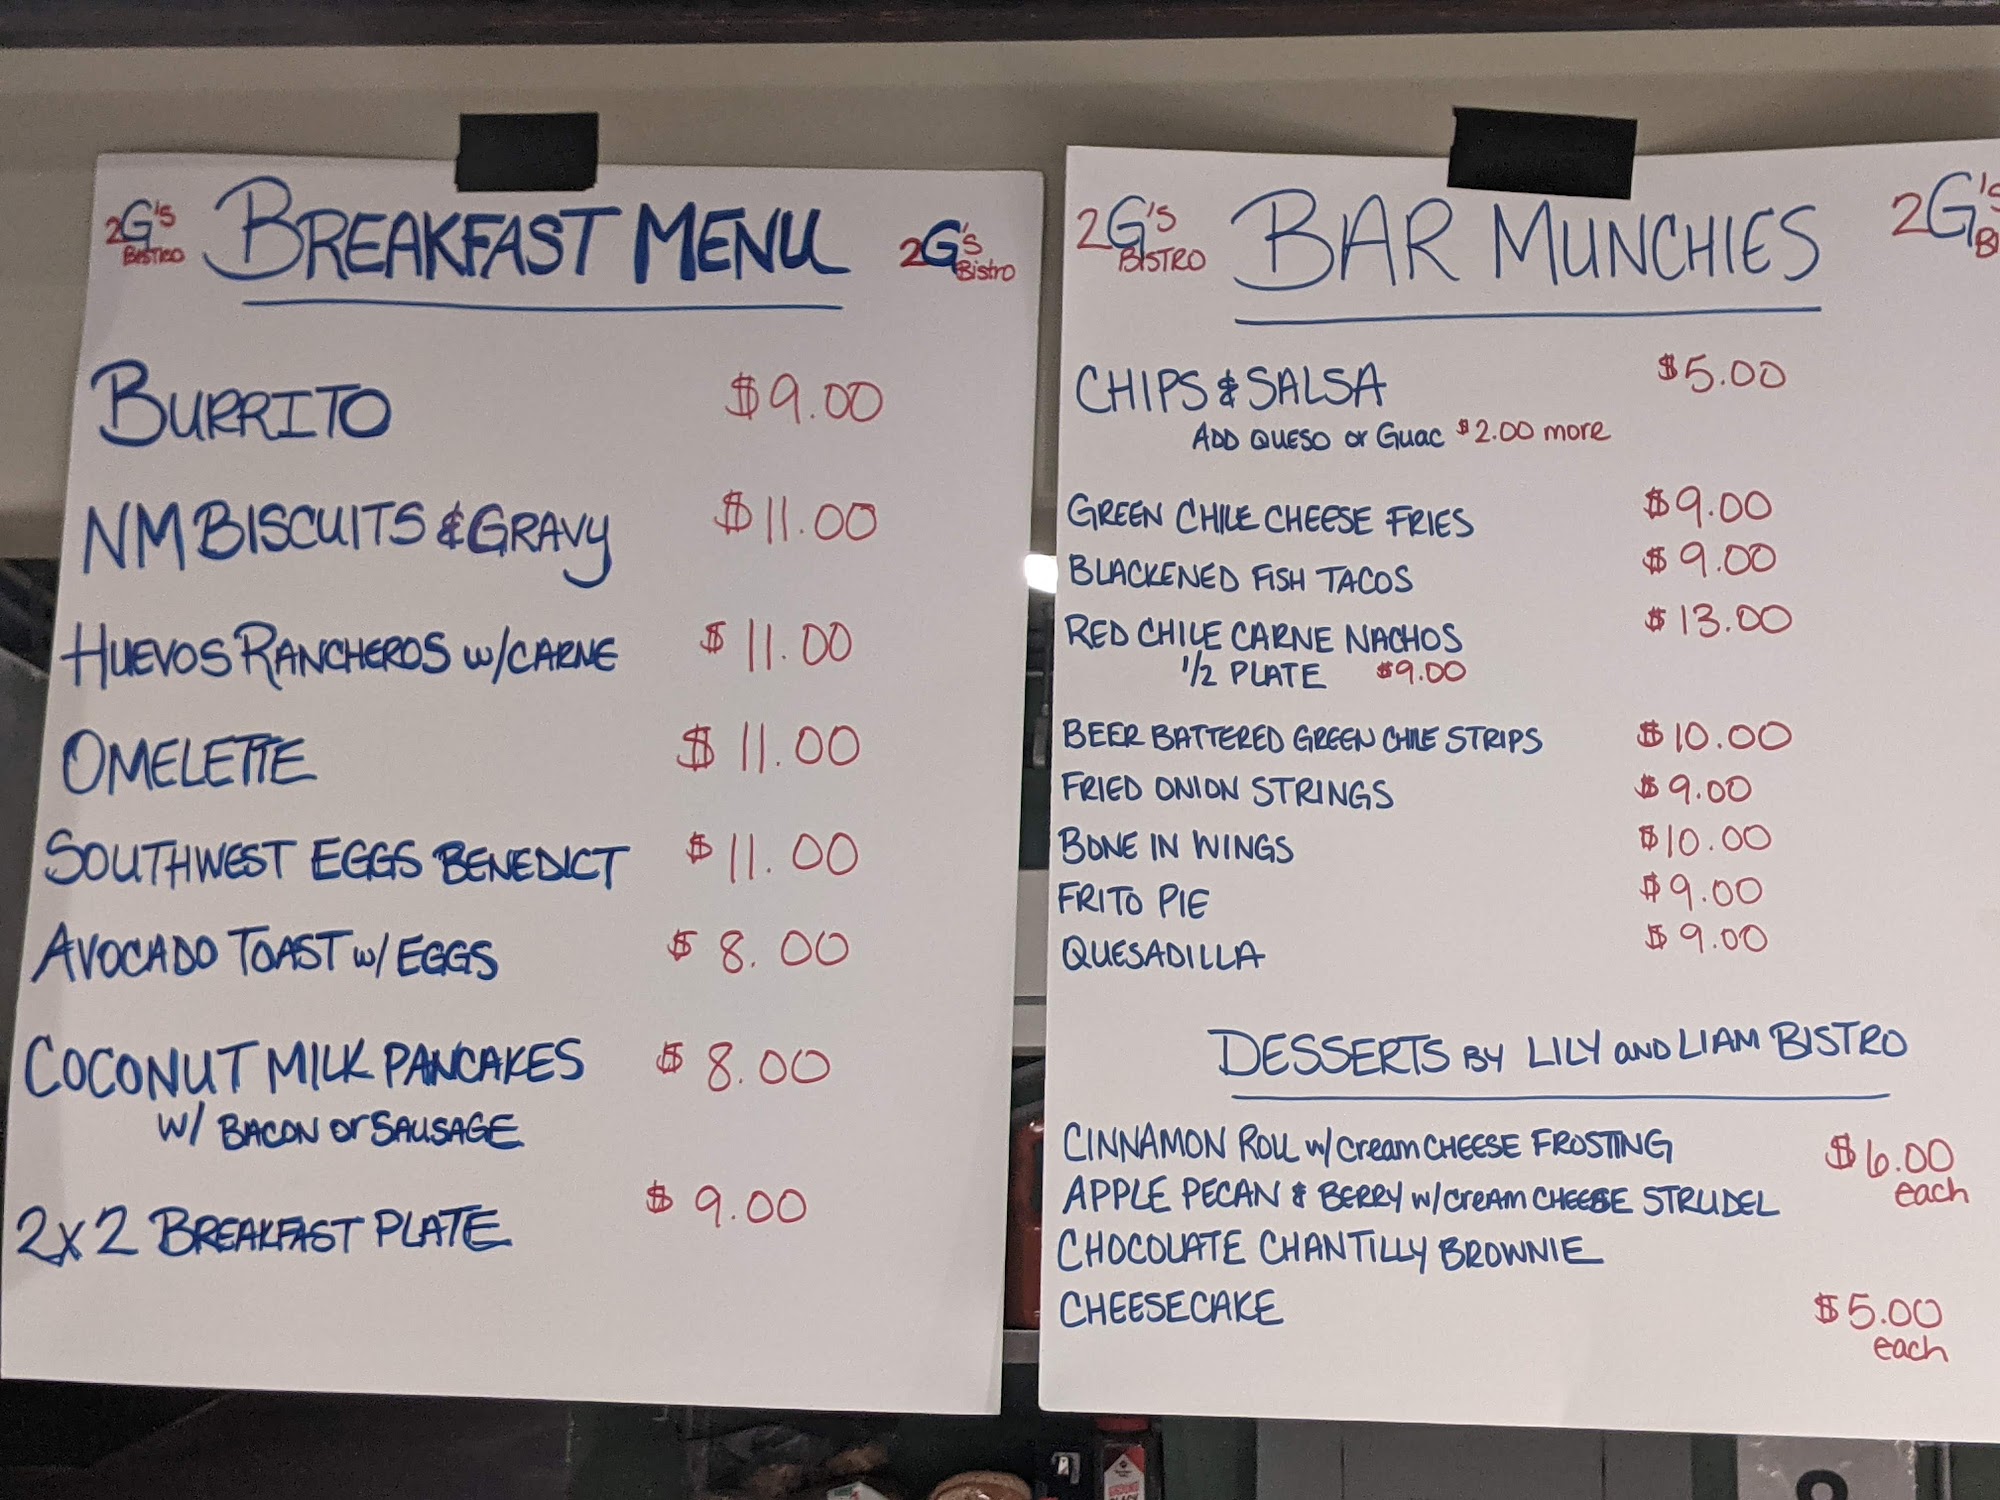 2G's BISTRO BREAKFAST MENU 2G's Bistro
BURRITO $9.00
NM BISCUITS & GRAVY $11.00
HUEVOS RANCHEROS w/CARNE $11.00
OMELETTE $11.00
SOUTHWEST EGGS BENEDICT $11.00
AVOCADO TOAST w/ EGGS $8.00
COCONUT MILK PANCAKES $8.00
W/ BACON or SAUSAGE
2x2 BREAKFAST PLATE $9.00
2G's BISTRO BAR MUNCHIES 2G's
CHIPS & SALSA $5.00
ADD QUESO or Guac $2.00 more
GREEN CHILE CHEESE FRIES $9.00
BLACKENED FISH TACOS $9.00
RED CHILE CARNE NACHOS $13.00
1/2 PLATE $9.00
BEER BATTERED GREEN CHILE STRIPS $10.00
FRIED ONION STRINGS $9.00
BONE IN WINGS $10.00
FRITO PIE $9.00
QUESADILLA $9.00
DESSERTS BY LILY AND LIAM BISTRO
CINNAMON ROLL w/cream CHEESE FROSTING $6.00
each
APPLE PECAN & BERRY w/cream CHEESE STRUDEL
CHOCOLATE CHANTILLY BROWNIE
CHEESECAKE $5.00
each